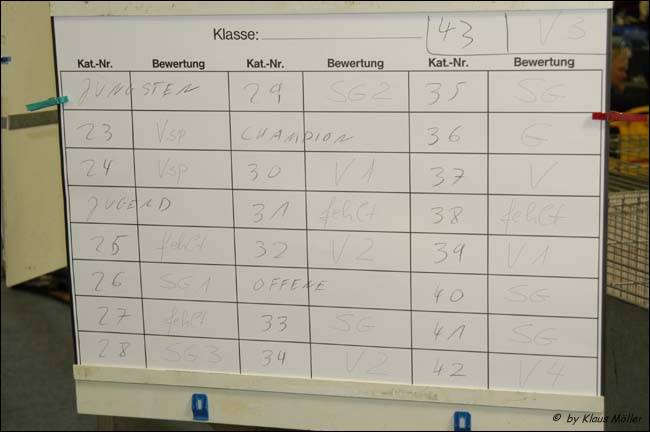 Klasse: 43 V3
Kat.-Nr. Bewertung Kat.-Nr. Bewertung Kat.-Nr. Bewertung
JÜNGSTEN 29 SG2 35 SG
23 Vsp CHAMPION 36 G
24 Vsp 30 V1 37 V
JUGEND 31 fehlt 38 fehlt
25 fehlt 32 V2 39 V1
26 SG1 OFFENE 40 SG
27 fehlt 33 SG 41 SG
28 SG3 34 V2 42 V4
© by Klaus Möller